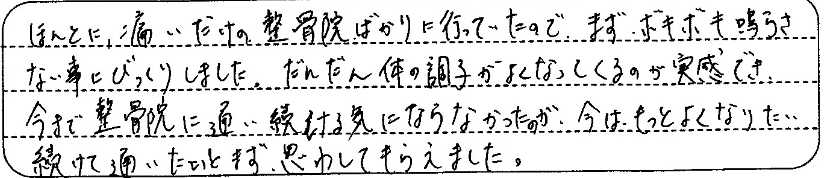 ほんとに、痛いだけの整骨院ばかりに行っていたので、まずボキボキ鳴らさ
ない事にびっくりしました。だんだん体の調子がよくなってくるのが実感でき、
今まで整骨院に通い続ける気にならなかったのが、今は、もっとよくなりたい
続けて通いたいとまず、思わしてもらえました。